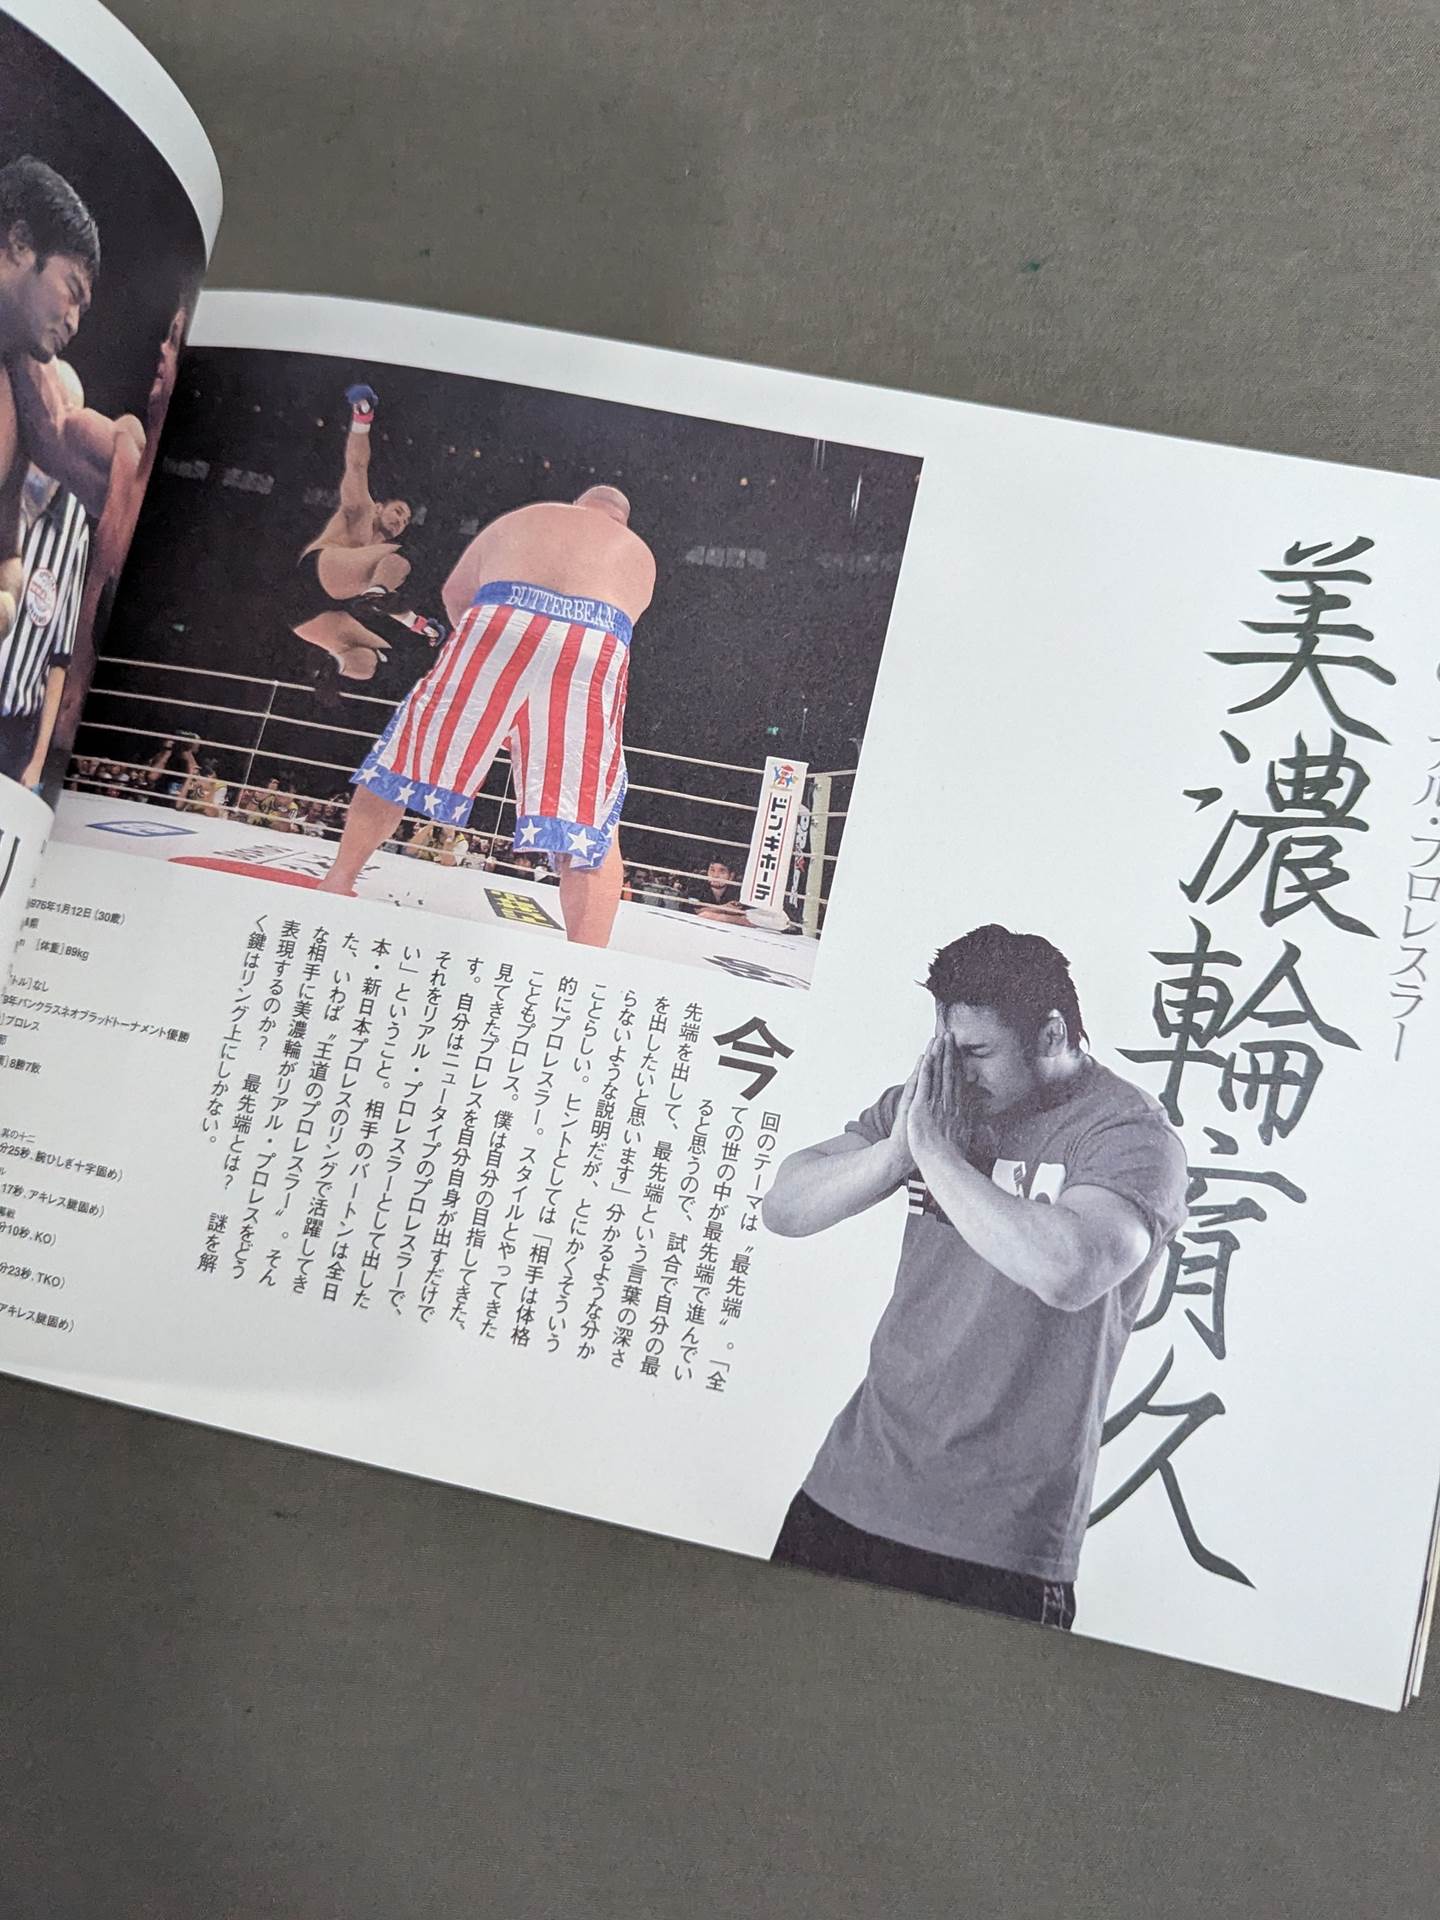 プロレスラー
美濃輪育久
今
回のテーマは〝最先端〟。「全
ての世の中が最先端で進んでい
ると思うので、試合で自分の最
先端を出して、最先端という言葉の深さ
を出したいと思います」分かるような分か
らないような説明だが、とにかくそういう
ことらしい。ヒントとしては「相手は体格
的にプロレスラー。スタイルとやってきた
こともプロレス。僕は自分の目指してきた、
見てきたプロレスを自分自身が出すだけで
す。自分はニュータイプのプロレスラーで、
それをリアル・プロレスラーとして出した
い」ということ。相手のバートンは全日
本・新日本プロレスのリングで活躍してき
た、いわば〝王道のプロレスラー〟。そん
な相手に美濃輪がリアル・プロレスをどう
表現するのか？　最先端とは？　謎を解
く鍵はリング上にしかない。
BUTTERBEAN
ドンキホーテ
976年1月12日（30歳）
［体重］89kg
トル］なし
9年パンクラスネオブラッドトーナメント優勝
］プロレス
］8勝7敗
其の十二
分25秒、腕ひしぎ十字固め）
17秒、アキレス腱固め）
分10秒、KO）
分23秒、TKO）
アキレス腱固め）